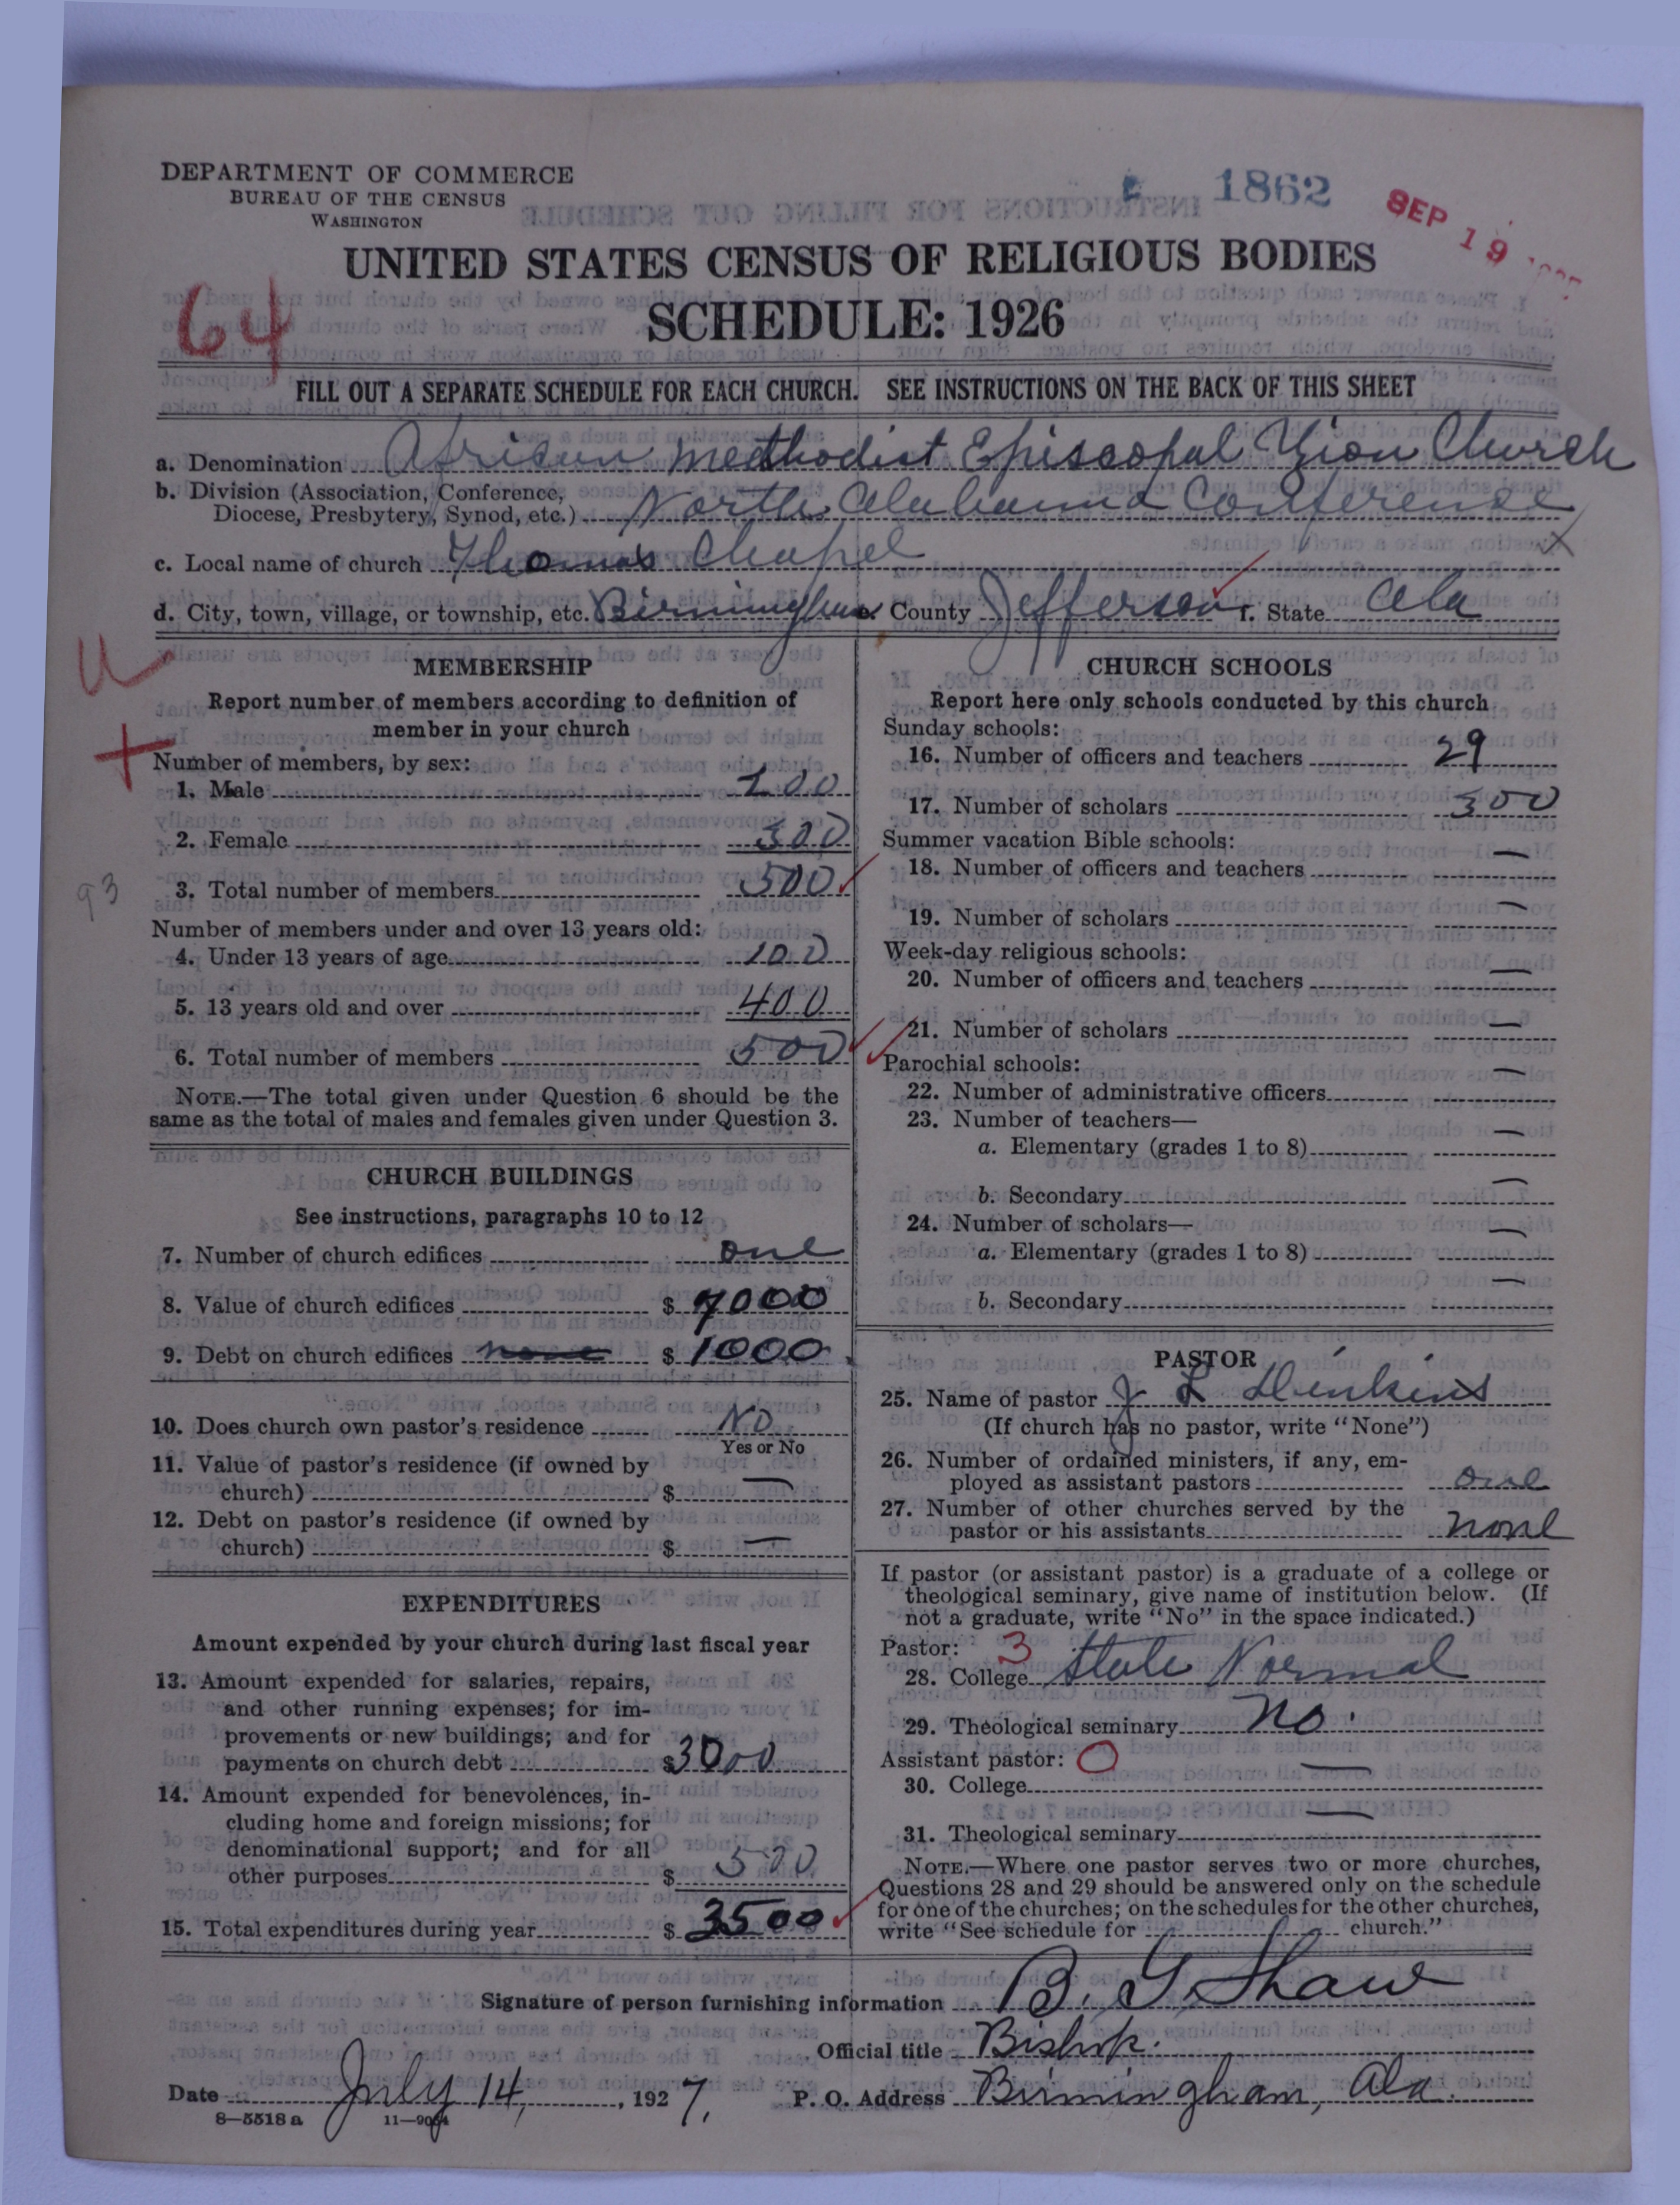 DEPARTMENT OF COMMERCE
BUREAU OF THE CENSUS
WASHINGTON
1862
SEP 19
UNITED STATES CENSUS OF RELIGIOUS BODIES
64
SCHEDULE: 1926
FILL OUT A SEPARATE SCHEDULE FOR EACH CHURCH. SEE INSTRUCTIONS ON THE BACK OF THIS SHEET
a. Denomination African Methodist Episcopal Zion Church
b. Division (Association, Conference,
Diocese, Presbytery, Synod, etc.) North Alabama Conference
c. Local name of church Thomas Chapel
d. City, town, village, or township, etc. Birmingham e. County Jefferson f. State Ala
MEMBERSHIP
Report number of members according to definition of
member in your church
Number of members, by sex:
1. Male 200
2. Female 300
3. Total number of members 500
93
Number of members under and over 13 years old:
4. Under 13 years of age 100
5. 13 years old and over 400
6. Total number of members 500
NOTE.—The total given under Question 6 should be the
same as the total of males and females given under Question 3.
CHURCH BUILDINGS
See instructions, paragraphs 10 to 12
7. Number of church edifices one
8. Value of church edifices $ 7000
9. Debt on church edifices none $ 1000
10. Does church own pastor's residence No
Yes or No
11. Value of pastor's residence (if owned by
church) $ —
12. Debt on pastor's residence (if owned by
church) $ —
EXPENDITURES
Amount expended by your church during last fiscal year
13. Amount expended for salaries, repairs,
and other running expenses; for im-
provements or new buildings; and for
payments on church debt $ 3000
14. Amount expended for benevolences, in-
cluding home and foreign missions; for
denominational support; and for all
other purposes $ 500
15. Total expenditures during year $ 3500
CHURCH SCHOOLS
Report here only schools conducted by this church
Sunday schools:
16. Number of officers and teachers 29
17. Number of scholars 300
Summer vacation Bible schools:
18. Number of officers and teachers —
19. Number of scholars —
Week-day religious schools:
20. Number of officers and teachers —
21. Number of scholars —
Parochial schools:
22. Number of administrative officers —
23. Number of teachers—
a. Elementary (grades 1 to 8) —
b. Secondary —
24. Number of scholars—
a. Elementary (grades 1 to 8) —
b. Secondary —
PASTOR
25. Name of pastor J L Jenkins
(If church has no pastor, write "None")
26. Number of ordained ministers, if any, em-
ployed as assistant pastors one
27. Number of other churches served by the
pastor or his assistants none
If pastor (or assistant pastor) is a graduate of a college or
theological seminary, give name of institution below. (If
not a graduate, write "No" in the space indicated.)
Pastor: 3
28. College State Normal
29. Theological seminary no.
Assistant pastor: 0
30. College —
31. Theological seminary —
NOTE.—Where one pastor serves two or more churches,
Questions 28 and 29 should be answered only on the schedule
for one of the churches; on the schedules for the other churches,
write "See schedule for church."
Signature of person furnishing information B. G. Shaw
Official title Bishop.
Date July 14, 1927. P. O. Address Birmingham, Ala.
8—5518a 11—9064